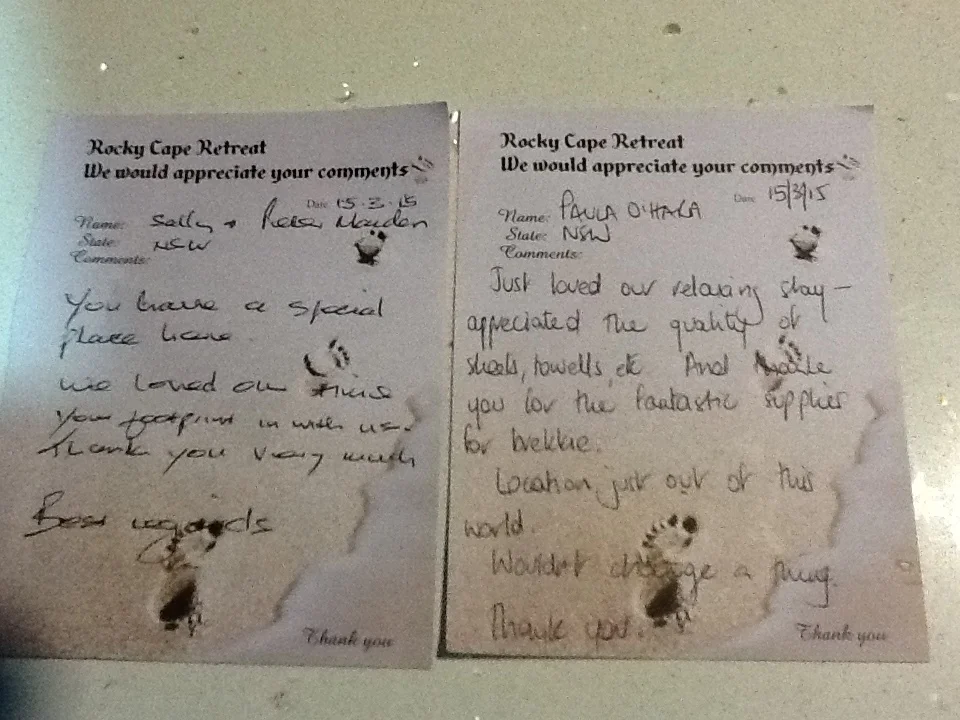 Rocky Cape Retreat
We would appreciate your comments
Date 15.3.15
Name: Sally +
State: NSW
Comments:
You have a special
place here.
We loved our time
Your footprint is with us.
Thank you very much
Best regards
Thank you
Rocky Cape Retreat
We would appreciate your comments
Date 15/3/15
Name: PAULA O'HARA
State: NSW
Comments:
Just loved our relaxing stay –
appreciated the quality of
sheets, towells, etc. And thank
you for the fantastic supplies
for brekkie.
Location, just out of this
world.
Wouldn't change a thing.
Thank you.
Thank you